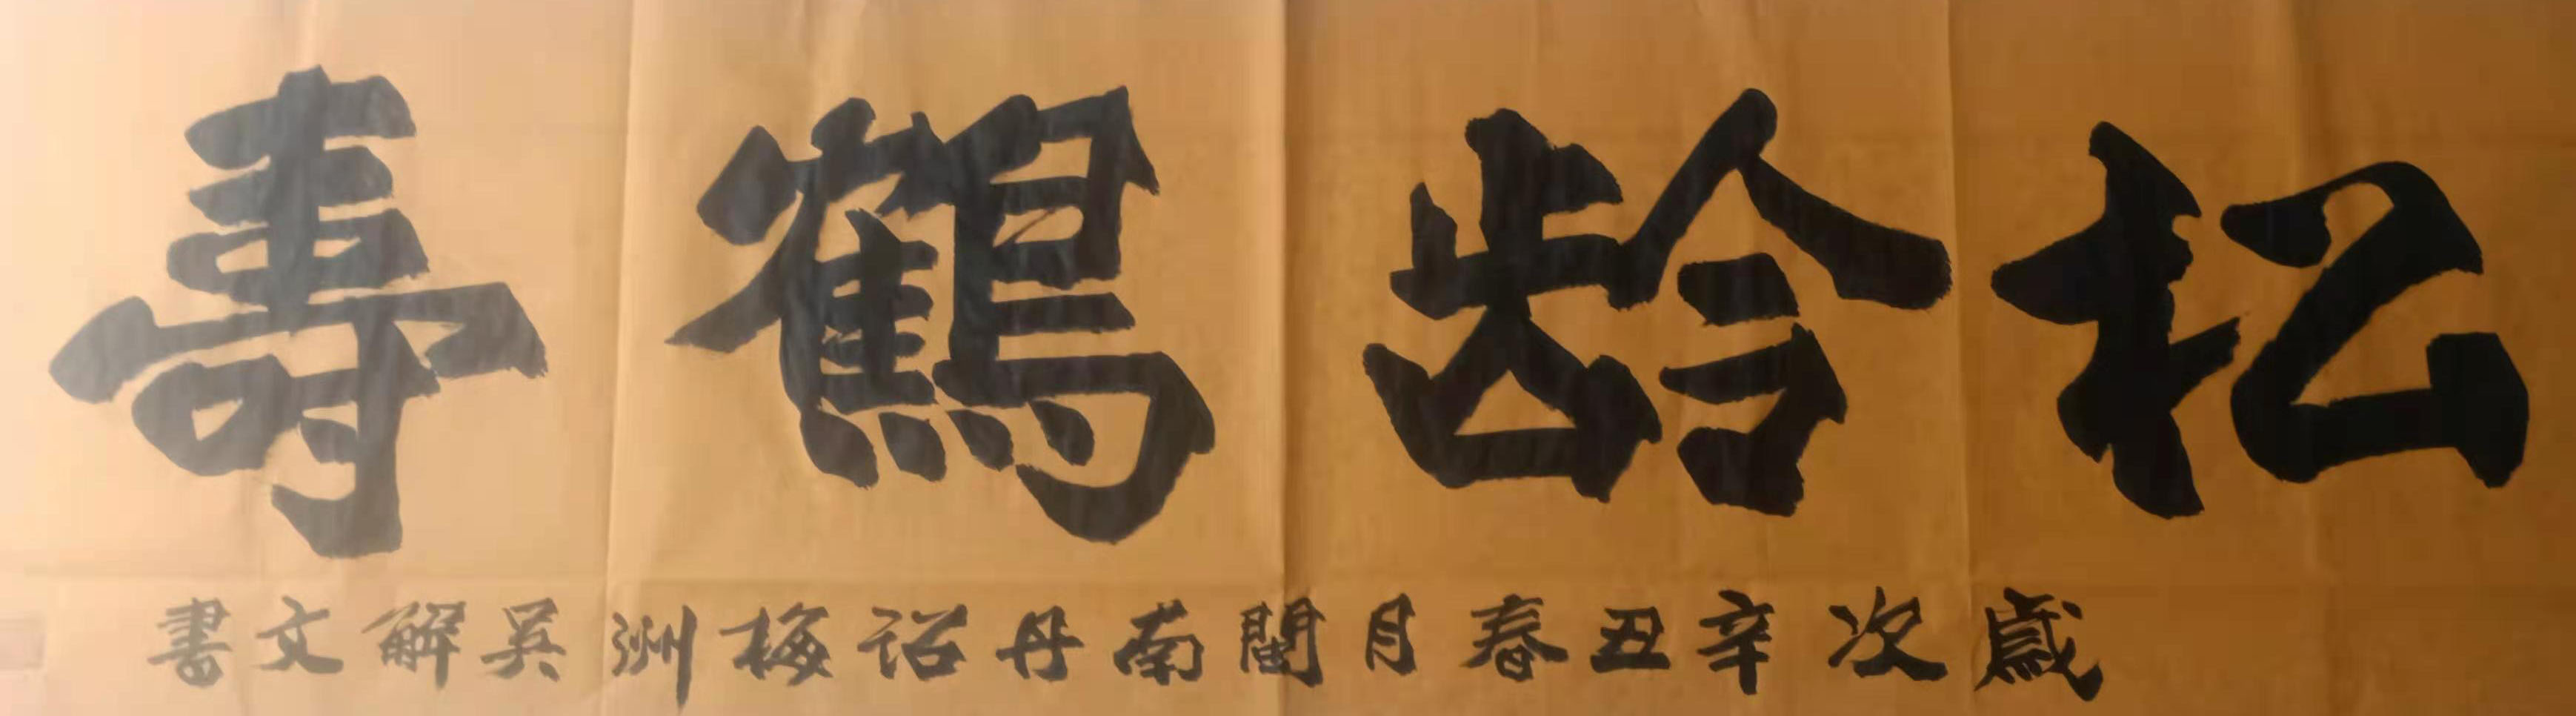 松龄鶴壽
歲次辛丑春月閩南丹詔梅洲吴解文書